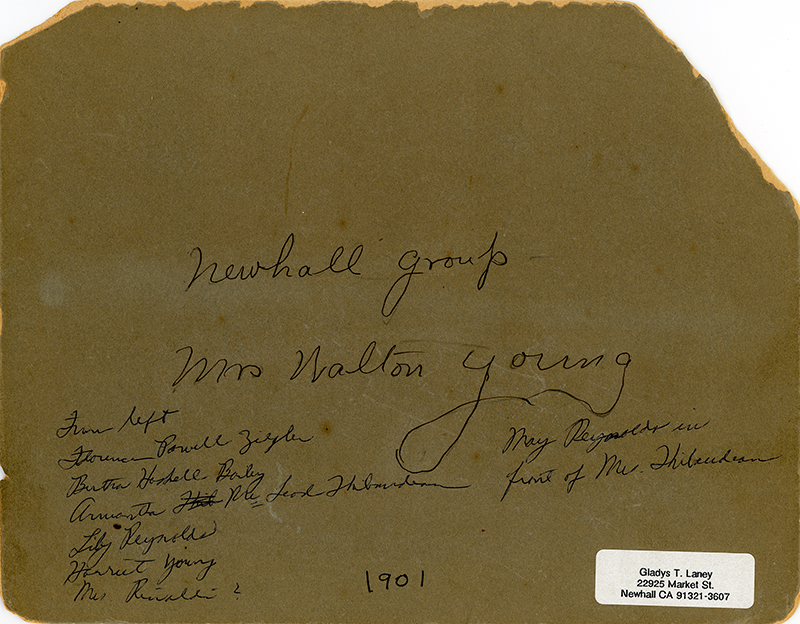 Newhall group
Mrs Walton Young
From left
Florence Powell Ziegler
Bertha Haskell Bailey
Armantha Thibaudeau
Lily Reynolds
Harriet Young
Mrs Rinaldi ?
May Reynolds in
front of Mrs. Thibaudeau
1901
Gladys T. Laney
22925 Market St.
Newhall CA 91321-3607